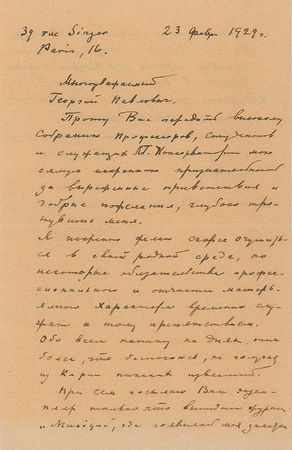 39 rue Singer 23 Февр 1929 г.
Paris, 16.
Многоуважаемый
Георгий Павлович,
Прошу Вас передать высокому
собранию профессоров, студентов
и служащих Тб. Консерватории мою
самую искреннюю признательность
за выражение приветствия и
добрые пожелания, глубоко тро-
нувшие меня.
Я искренно желаю скорее очутить-
ся в своей родной среде, но
некоторые обязательства профес-
сионального и отчасти матерь-
ялного характера временно слу-
жат к тому препятствием.
Обо всем напишу на днях, тем
более, что беспокоюсь, не получая
из никаких известий.
При сем посылаю Вам экзем-
пляр только что вышедшего
"Musique", где появилась моя